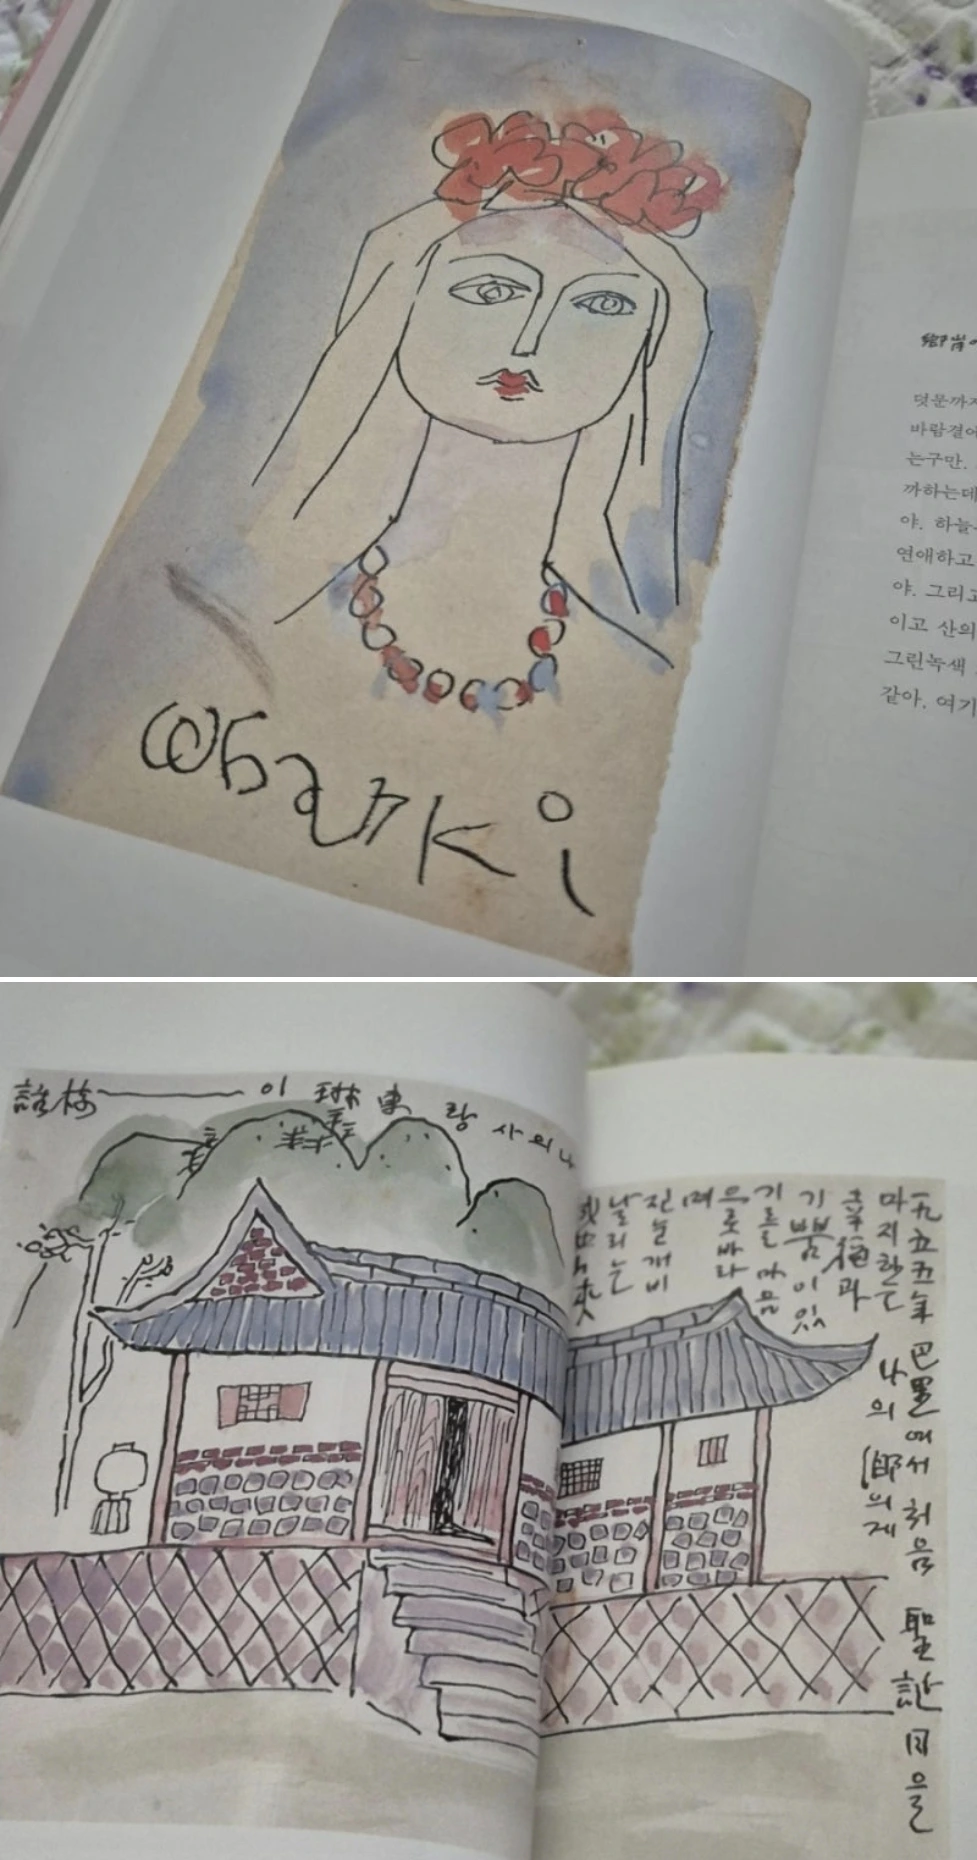 whanki
덧문까지
바람결에
는구만.
까하는데
야. 하늘
연애하고
야. 그리고
이고 산의
그린녹색
같아. 여기
나의 사랑 東琳이
一九五五年 巴里에서 처음 聖誕日을
마지한 나의 의게
幸福과
기쁨이 있
기를 마음
으로 바라
며
진눈개비
날리는